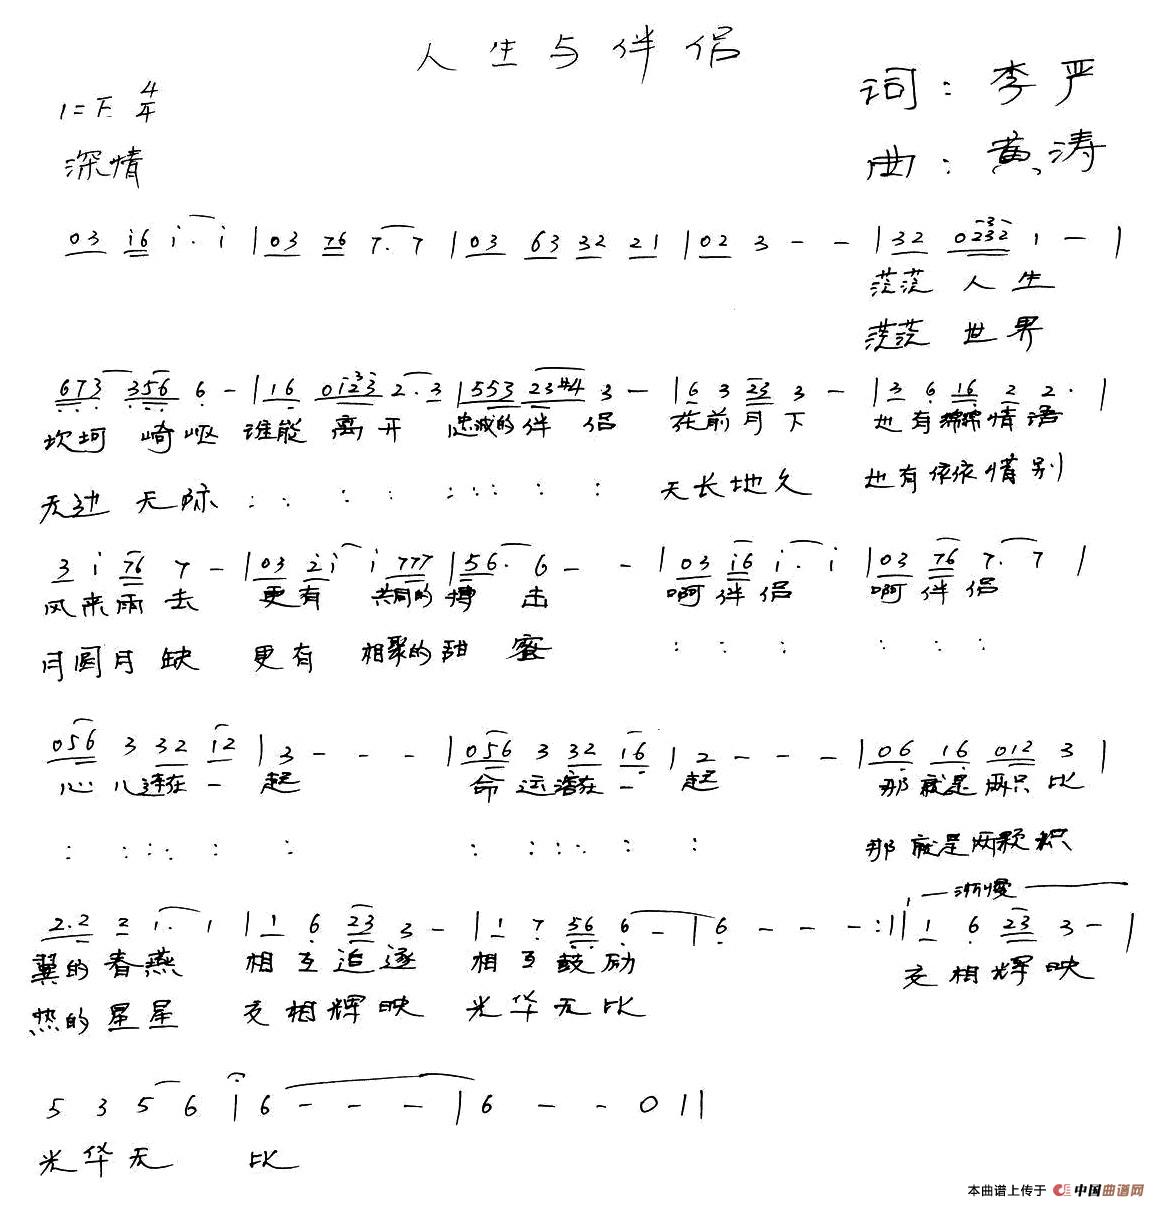 人生与伴侣
词：李严
1=F 4/4
曲：黄涛
深情
03 i6 i. i | 03 76 7. 7 | 03 63 32 21 | 02 3 - - | 32 0232 1 - |
茫茫 人 生
茫茫 世 界
673 356 6 - | 16 0123 2. 3 | 553 23#4 3 - | 6 3 23 3 - | 3 6 16 2 2. |
坎坷 崎岖 谁能 离 开 忠诚的 伴 侣 在前月下 也有绵绵情语
无边 无际 : : : : : : : : : : 天长地久 也有依依惜别
3 i 76 7 - | 03 2i i 777 | 56. 6 - - | 03 i6 i. i | 03 76 7. 7 |
风来雨去 更有 共同的搏 击 啊 伴 侣 啊 伴 侣
月圆月缺 更有 相聚的甜 蜜 : : : : : :
056 3 32 12 | 3 - - - | 056 3 32 16 | 2 - - - | 06 16 012 3 |
心儿连在一 起 命运落在一 起 那就是两只比
: : : : : : : : : : : : 那就是两颗炽
渐慢
2.2 2 1. 1 | 1 6 23 3 - | 1 7 56 6 - | 6 - - - :|| 1 6 23 3 - |
翼的春燕 相互追逐 相互鼓励 交相辉映
热的星星 交相辉映 光华无比
5 3 5 6 | 6 - - - | 6 - - 0 ||
光华无 比
本曲谱上传于 中国曲谱网